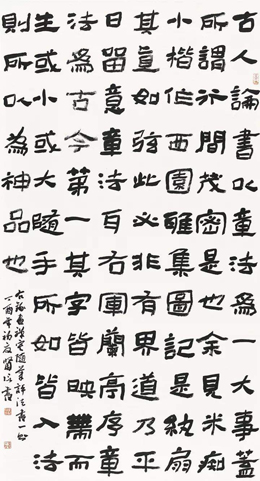 古人論書以章法為一大事蓋
所謂行間茂密是也余見米痴
小楷作西園雅集圖記是紈扇
其直如弦此必非有界道乃平
日留意章法耳右軍蘭亭序章
法為古今第一其字皆映帶而
生或小或大隨手所如皆入法
則所以為神品也
右錄畫禪室隨筆評法書一則
丁酉年初夏